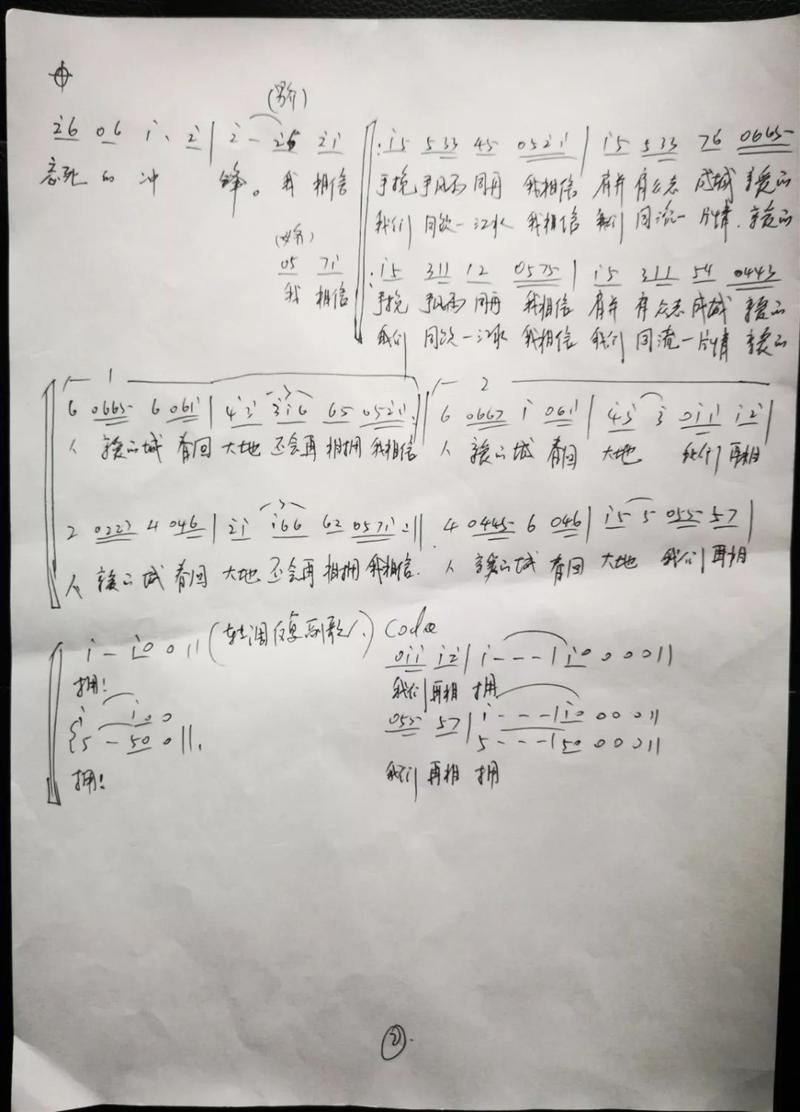 (男齐)
2̇6 06 i· 2̇ | 2̇ - 2̇6 2̇i
的 冲 锋。 我 相信
‖: i5 533 45 052̇i | i5 533 76 0665
手挽手风雨同舟 我相信 有并有众志成城 亲爱的
我们 同饮一江水 我相信 我们 同流一片情. 亲爱的
05 7i
我 相信
: i5 311 12 0575 | i5 311 54 0443
手挽手风雨同舟 我相信 有并有众志成城 亲爱的
我们 同饮一江水 我相信 我们 同流一片情 亲爱的
1
6 0665 6 06i | 4̇3̇ 3̇i6 65 052̇i :
人 亲爱的城 春回 大地 还会再 相拥 我相信
2
6 0667 i 06i | 4̇3̇ 3̇ 0ii i2̇ |
人 亲爱的城 春回 大地 我们 再相
2 0223 4 046 | 2̇i i66 62 057i :‖
人 亲爱的城 春回 大地 还会再 相拥 我相信.
4 0445 6 046 | i5 5 055 57 |
人 亲爱的城 春回 大地 我们 再相
i - i0 0 ‖ (转调反复副歌)
拥!
Coda
0ii i2̇ | i - - - | i0 0 0 0 ‖
我们 再相 拥
i i0 0
5 - 50 0 ‖.
拥!
055 57 | i - - - | i0 0 0 0 ‖
5 - - - | 50 0 0 0 ‖
我们 再相 拥
②